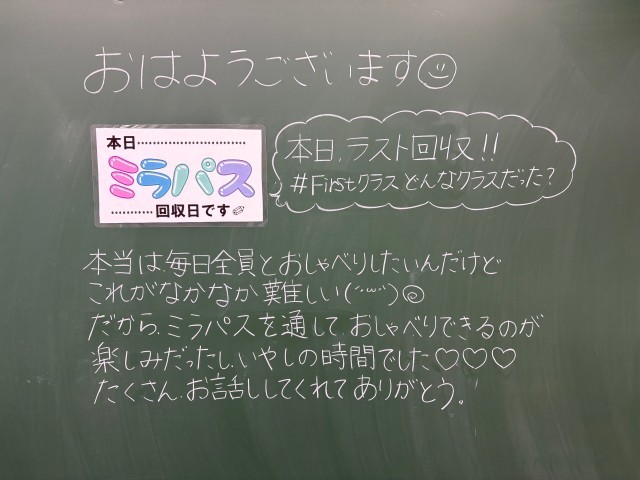 おはようございます☺
本日
ミラパス
回収日です
本日、ラスト回収!!
#Firstクラスどんなクラスだった?
本当は、毎日全員とおしゃべりしたいんだけど
これがなかなか難しい(´˘`)
だから、ミラパスを通して、おしゃべりできるのが
楽しみだったし、いやしの時間でした♡♡♡
たくさん、お話ししてくれてありがとう。